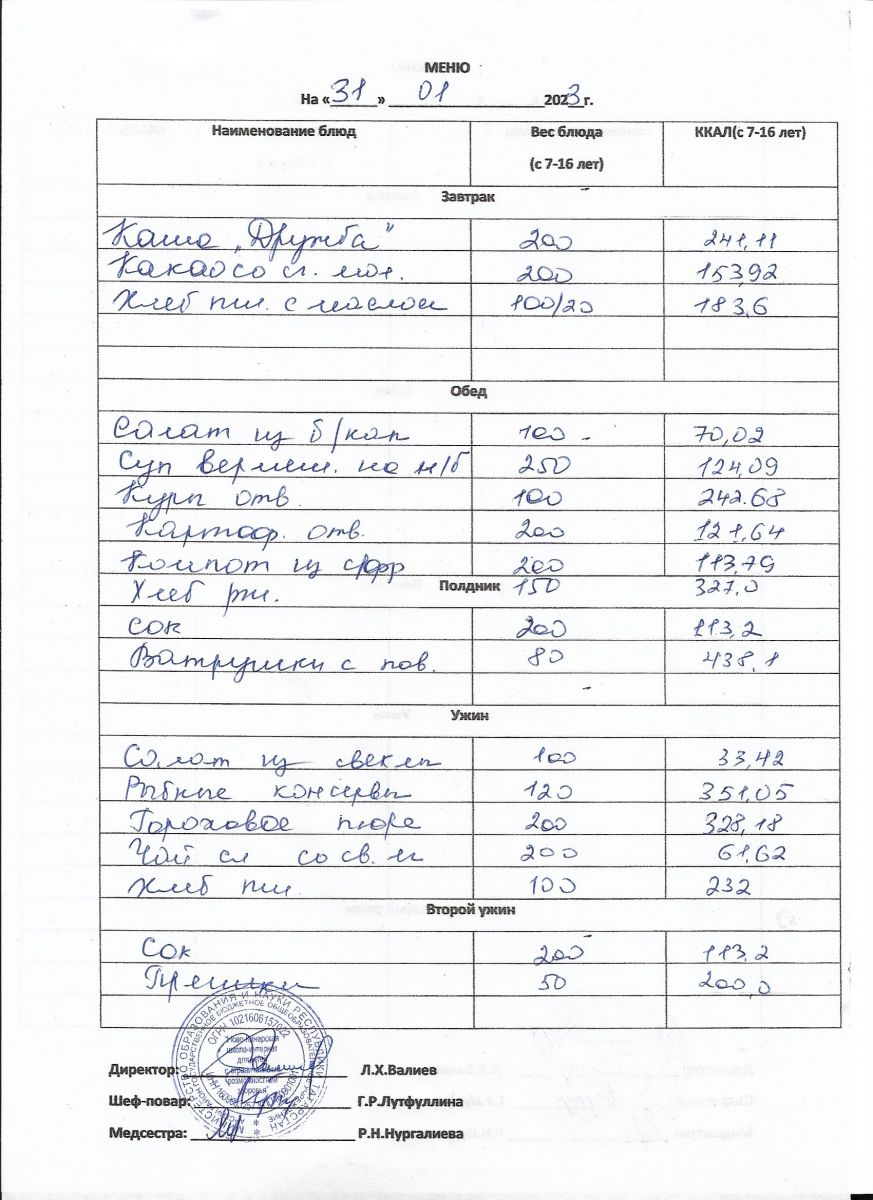 МЕНЮ
На «31» 01 2023 г.
Наименование блюд Вес блюда (с 7-16 лет) ККАЛ(с 7-16 лет)
Завтрак
Каша „Дружба" 200 241,11
Какао со сг. мол. 200 153,92
Хлеб пш. с маслом 100/20 183,6
Обед
Салат из б/кап 100 70,02
Суп вермиш. на м/б 250 124,09
Куры отв. 100 242.68
Картоф. отв. 200 121,64
Компот из с/фр 200 113,79
Хлеб рж. 150 327,0
Полдник
сок 200 113,2
Ватрушки с пов. 80 438,1
Ужин
Салат из свеклы 100 33,42
Рыбные консервы 120 351,05
Гороховое пюре 200 328,18
Чай сл со св. м 200 61,62
Хлеб пш. 100 232
Второй ужин
Сок 200 113.2
Пряники 50 200,0
Директор: Л.Х.Валиев
Шеф-повар: Г.Р.Лутфуллина
Медсестра: Р.Н.Нургалиева
ОГРН 1021606157022